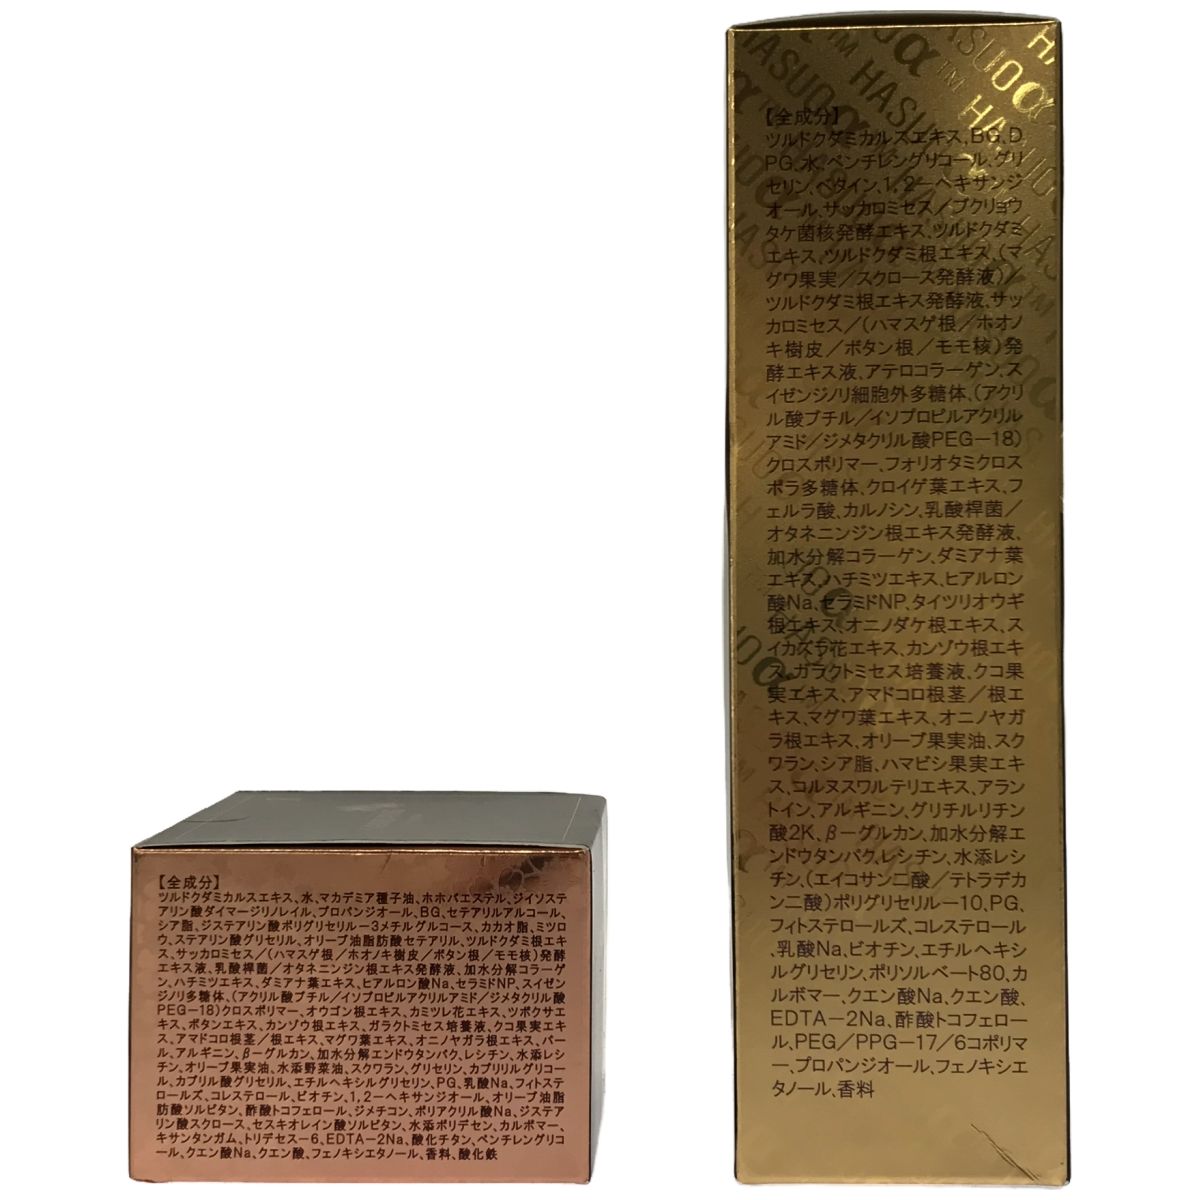 【全成分】
ツルドクダミカルスエキス、水、マカデミア種子油、ホホバエステル、ジイソステ
アリン酸ダイマージリノレイル、プロパンジオール、BG、セテアリルアルコール、
シア脂、ジステアリン酸ポリグリセリル－3メチルグルコース、カカオ脂、ミツロ
ウ、ステアリン酸グリセリル、オリーブ油脂肪酸セテアリル、ツルドクダミ根エキ
ス、サッカロミセス／（ハマスゲ根／ホオノキ樹皮／ボタン根／モモ核）発酵
エキス液、乳酸桿菌／オタネニンジン根エキス発酵液、加水分解コラーゲ
ン、ハチミツエキス、ダミアナ葉エキス、ヒアルロン酸Na、セラミドNP、スイゼン
ジノリ多糖体、（アクリル酸ブチル／イソプロピルアクリルアミド／ジメタクリル酸
PEG－18）クロスポリマー、オウゴン根エキス、カミツレ花エキス、ツボクサエ
キス、ボタンエキス、カンゾウ根エキス、ガラクトミセス培養液、クコ果実エキ
ス、アマドコロ根茎／根エキス、マグワ葉エキス、オニノヤガラ根エキス、パー
ル、アルギニン、β－グルカン、加水分解エンドウタンパク、レシチン、水添レシ
チン、オリーブ果実油、水添野菜油、スクワラン、グリセリン、カプリリルグリコー
ル、カプリル酸グリセリル、エチルヘキシルグリセリン、PG、乳酸Na、フィトステ
ロールズ、コレステロール、ビオチン、1，2－ヘキサンジオール、オリーブ油脂
肪酸ソルビタン、酢酸トコフェロール、ジメチコン、ポリアクリル酸Na、ジステアリ
ン酸スクロース、セスキオレイン酸ソルビタン、水添ポリデセン、カルボマー、
キサンタンガム、トリデセス－6、EDTA－2Na、酸化チタン、ペンチレングリコ
ール、クエン酸Na、クエン酸、フェノキシエタノール、香料、酸化鉄
【全成分】
ツルドクダミカルスエキス、BG、D
PG、水、ペンチレングリコール、グリ
セリン、ベタイン、1，2－ヘキサンジ
オール、サッカロミセス／ブクリョウ
タケ菌核発酵エキス、ツルドクダミ
エキス、ツルドクダミ根エキス、（マ
グワ果実／スクロース発酵液）／
ツルドクダミ根エキス発酵液、サッ
カロミセス／（ハマスゲ根／ホオノ
キ樹皮／ボタン根／モモ核）発
酵エキス液、アテロコラーゲン、ス
イゼンジノリ細胞外多糖体、（アクリ
ル酸ブチル／イソプロピルアクリル
アミド／ジメタクリル酸PEG－18）
クロスポリマー、フォリオタミクロス
ポラ多糖体、クロイゲ葉エキス、フ
ェルラ酸、カルノシン、乳酸桿菌／
オタネニンジン根エキス発酵液、
加水分解コラーゲン、ダミアナ葉
エキス、ハチミツエキス、ヒアルロン
酸Na、セラミドNP、タイツリオウギ
根エキス、オニノダケ根エキス、ス
イカズラ花エキス、カンゾウ根エキ
ス、ガラクトミセス培養液、クコ果
実エキス、アマドコロ根茎／根エ
キス、マグワ葉エキス、オニノヤガ
ラ根エキス、オリーブ果実油、スク
ワラン、シア脂、ハマビシ果実エキ
ス、コルヌスワルテリエキス、アラン
トイン、アルギニン、グリチルリチン
酸2K、β－グルカン、加水分解エ
ンドウタンパク、レシチン、水添レシ
チン、（エイコサン二酸／テトラデカ
ン二酸）ポリグリセリル－10、PG、
フィトステロールズ、コレステロール
、乳酸Na、ビオチン、エチルヘキシ
ルグリセリン、ポリソルベート80、カ
ルボマー、クエン酸Na、クエン酸、
EDTA－2Na、酢酸トコフェロー
ル、PEG／PPG－17／6コポリマ
ー、プロパンジオール、フェノキシエ
タノール、香料